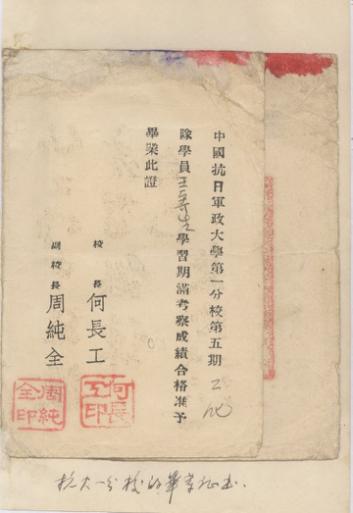 中國抗日軍政大學第一分校第五期
隊學員王學習期滿考察成績合格准予
畢業此證
校長 何長工
副校長 周純全
何長工印
周純全印
抗大一分校的畢業证书.